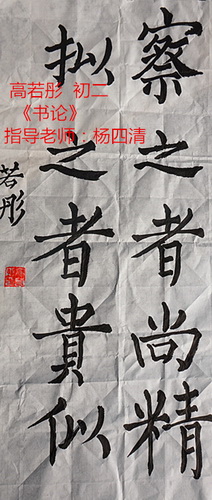 察之者尚精
拟之者貴似
若彤
高若彤 初二
《书论》
指导老师：杨四清